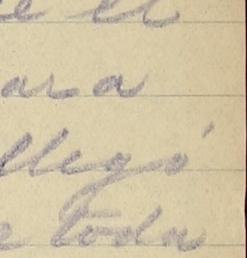 e el
ara
llegó
e toda